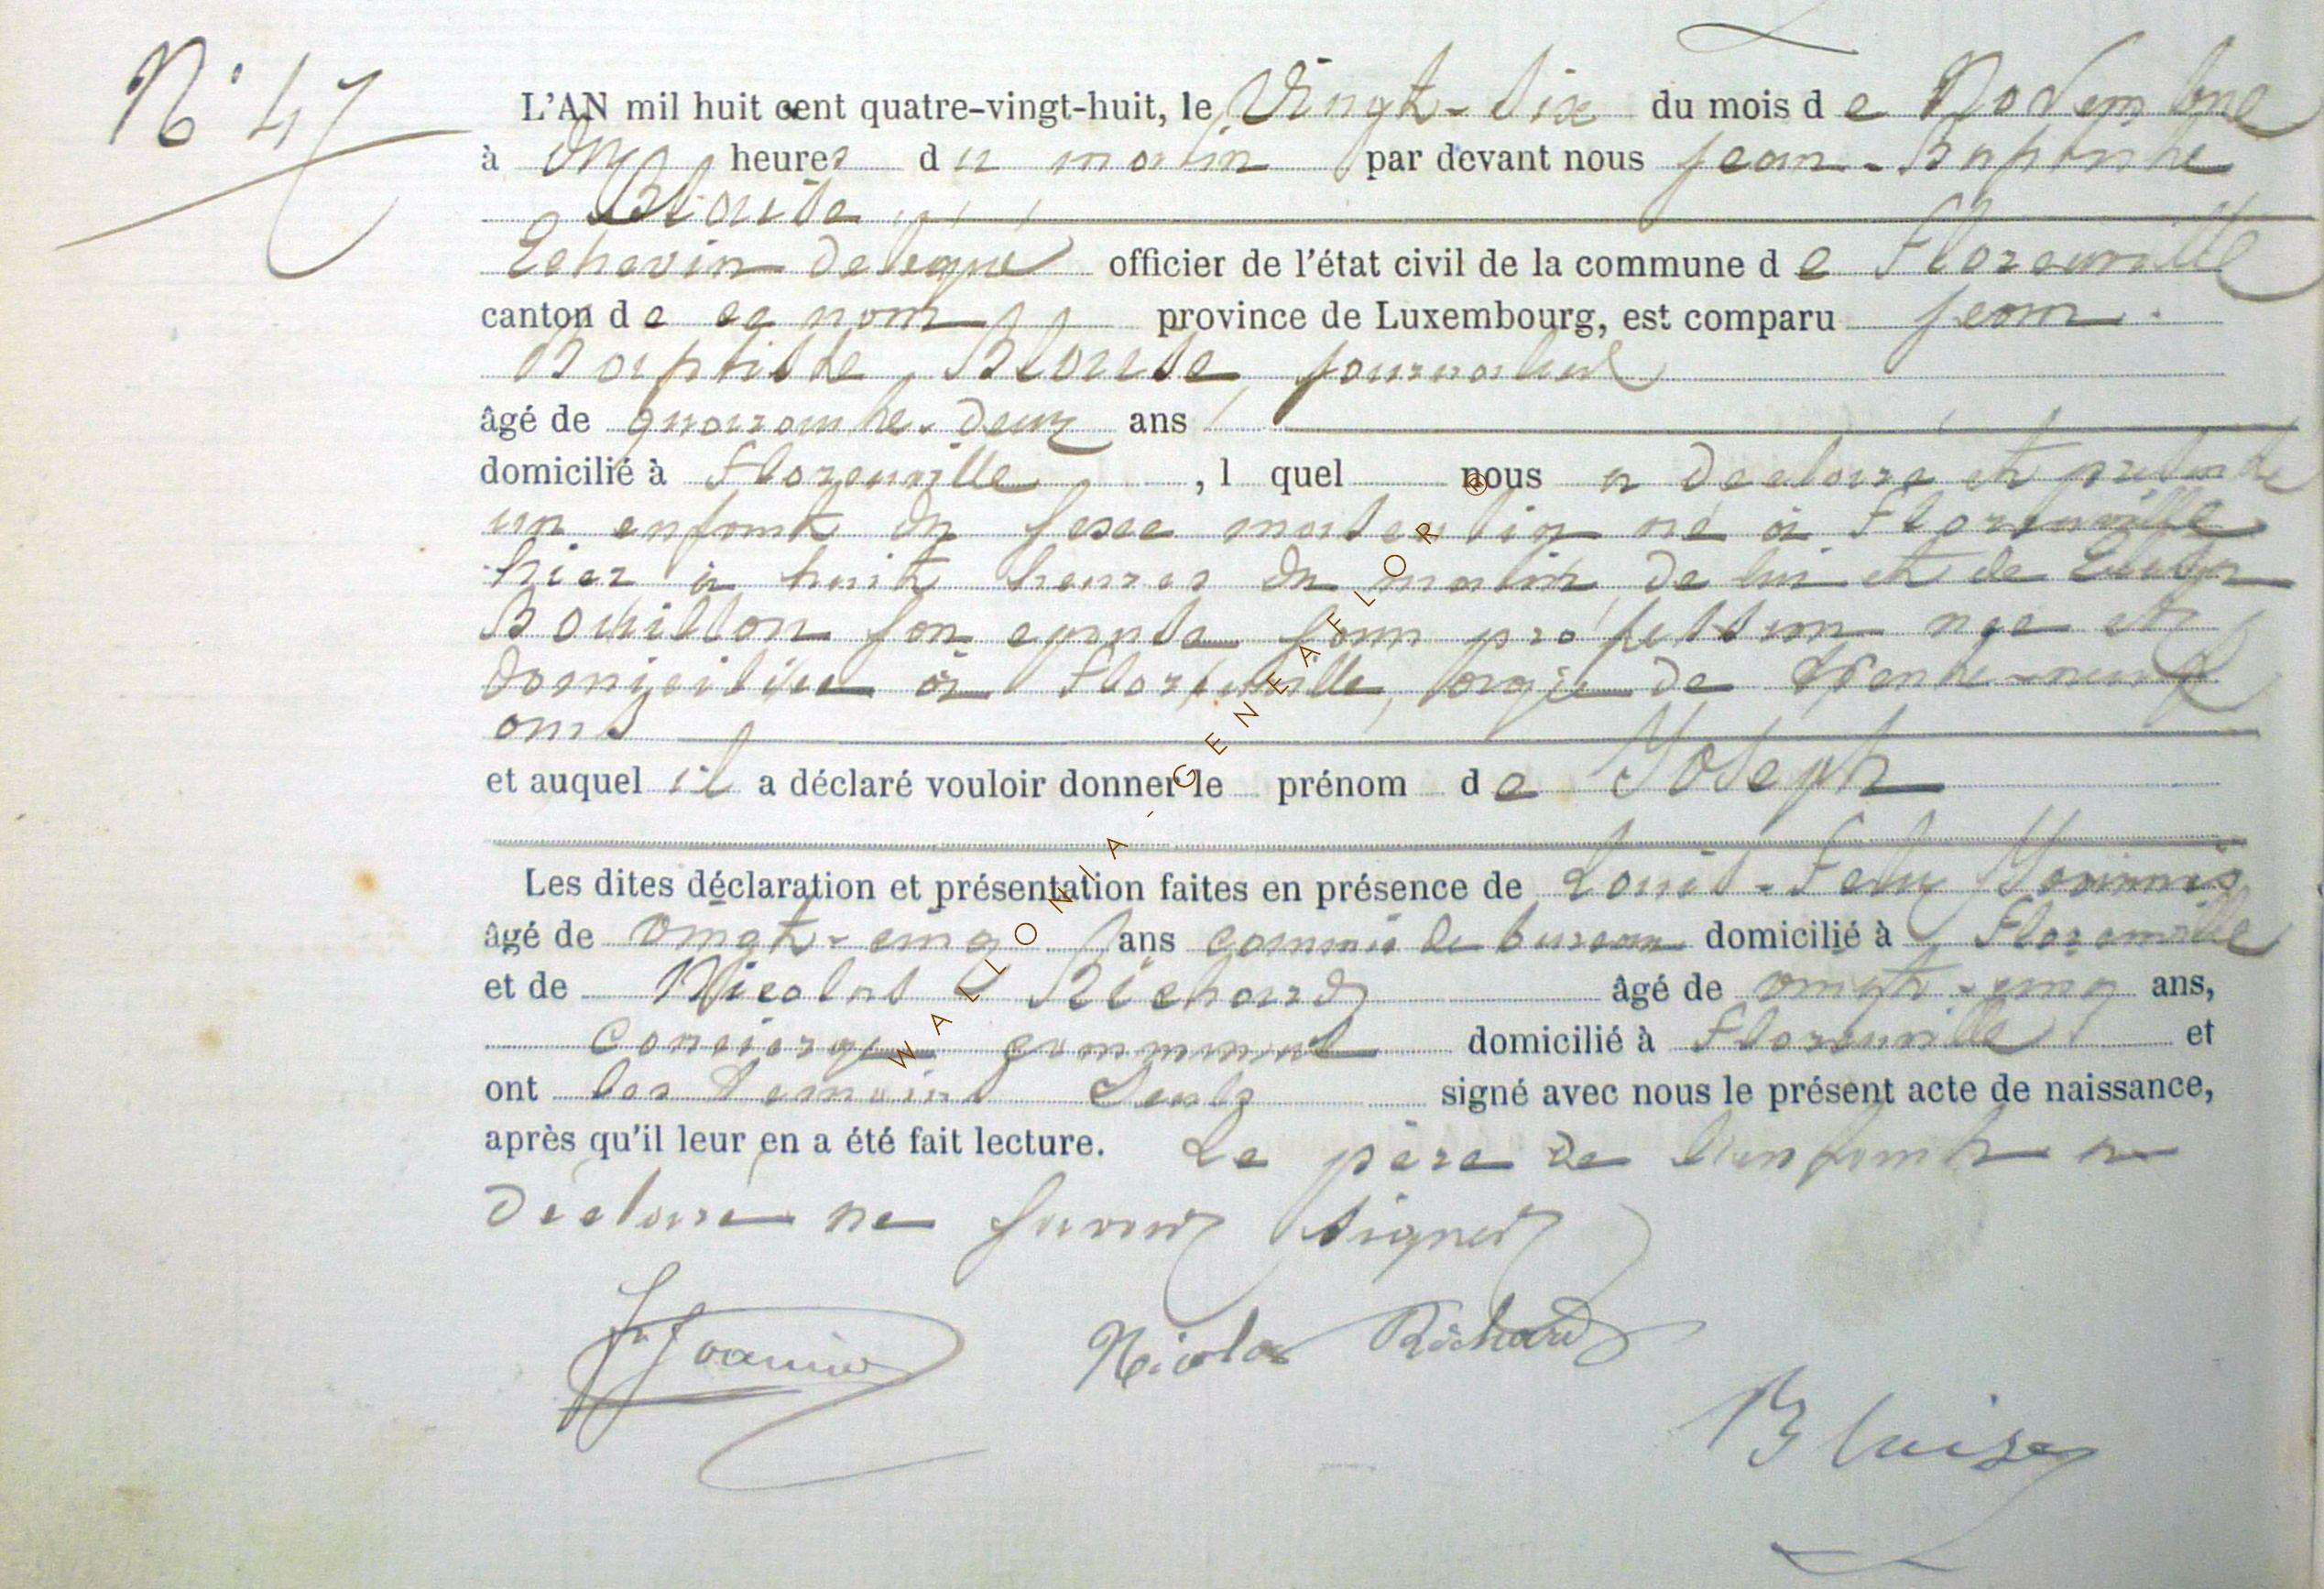 N° 47
L'AN mil huit cent quatre-vingt-huit, le Vingt-six du mois de Novembre
à onze heures du matin par devant nous Jean-Baptiste
Blaise
Echevin délégué officier de l'état civil de la commune de Florenville
canton de ce nom province de Luxembourg, est comparu Jean
Baptiste Blaise, journalier
âgé de quarante-deux ans
domicilié à Florenville, l quel nous a déclaré et présenté
un enfant du sexe masculin né à Florenville
hier à huit heures du matin, de lui et de
Bouillon son épouse sans profession née et
domiciliée à Florenville, âgée de trente-neuf
ans
et auquel il a déclaré vouloir donner le prénom de Joseph
Les dites déclaration et présentation faites en présence de Louis-Felix
âgé de vingt-cinq ans commis de bureau domicilié à Florenville
et de Nicolas Richard âgé de vingt-cinq ans,
Concierge communal domicilié à Florenville et
ont les témoins seuls signé avec nous le présent acte de naissance,
après qu'il leur en a été fait lecture. Le père de l'enfant a
déclaré ne savoir signer
Nicolas Richard
Blaise
WALLONIA - GENEAFLOR ®